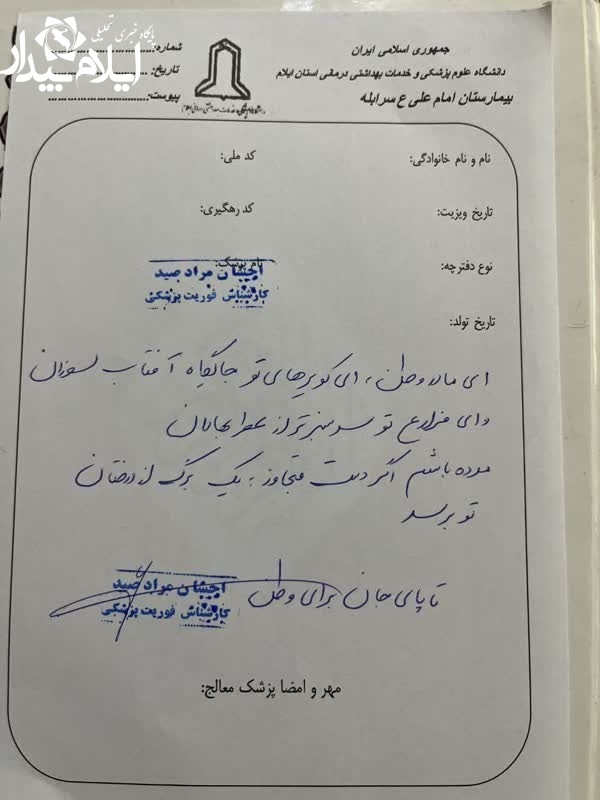 پایگاه خبری تحلیلی
ایلام بیدار
جمهوری اسلامی ایران
دانشگاه علوم پزشکی و خدمات بهداشتی درمانی استان ایلام
بیمارستان امام علی ع سرابله
شماره:
تاریخ:
پیوست:
نام و نام خانوادگی:
کد ملی:
تاریخ ویزیت:
کد رهگیری:
نوع دفترچه:
نام پزشک:
مراد صید
کارشناس فوریت پزشکی
تاریخ تولد:
ای مادر وطن، ای کویرهای تو جایگاه آفتاب سوزان
وای مزارع تو سرسبزتر از عطر بهاران
مرده باشم اگر دست متجاوز، به یک برگ از درختان
تو برسد
تا پای جان برای وطن
مراد صید
کارشناس فوریت پزشکی
مهر و امضا پزشک معالج: